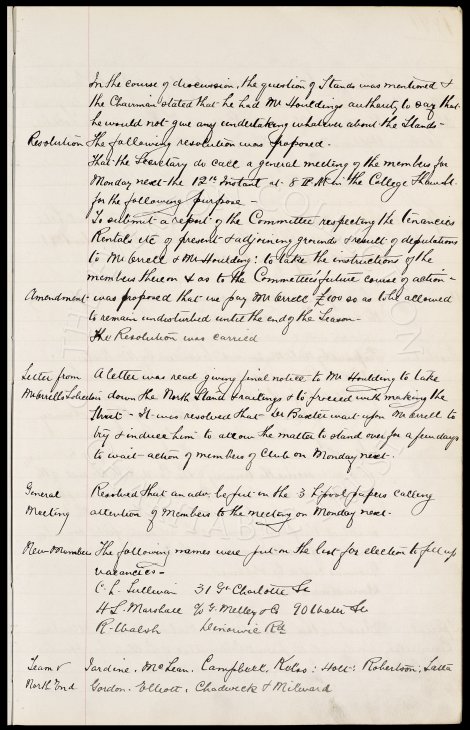 In the course of discussion, the question of Stands was mentioned &
the Chairman stated that he had Mr Houldings authority to say that
he would not give any undertaking whatever about the Stands -
Resolution The following resolution was proposed.
That the Secretary do call a general meeting of the members for
Monday next the 12th Instant at 8 P.M in the College Shaw St.
for the following purpose -
To submit a report of the Committee respecting the tenancies
Rentals etc of present & adjoining grounds & result of deputations
to Mr Orrell & Mr Houlding: to take the instructions of the
members thereon & as to the Committee's future course of action -
Amendment - was proposed that we pay Mr Orrell £100 so as to be allowed
to remain undisturbed until the end of the Season -
The Resolution was carried
Letter from A letter was read giving final notice to Mr Houlding to take
Mr Orrell's Solicitors down the North Stand & railings & to proceed with making the
Street - It was resolved that Dr Baxter wait upon Mr Orrell to
try & induce him to allow the matter to stand over for a few days
to wait action of members of Club on Monday next.
General Resolved that an adv. be put in the 3 L'pool papers calling
Meeting attention of Members to the meeting on Monday next -
New Members The following names were put on the list for election to fill up
vacancies -
C. L. Sullivan 31 Gt Charlotte St
H S. Marshall c/o G. Melley & Co 90 Water St
R. Walsh Dinorwic Rd
Team v Jardine. McLean. Campbell, Kelso: Holt: Robertson, Latta
North End Gordon. Elliott. Chadwick & Milward